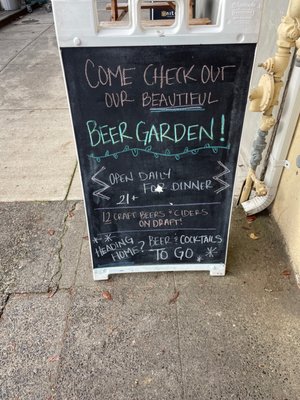 COME CHECK OUT
OUR BEAUTIFUL
BEER GARDEN!
OPEN DAILY
FOR DINNER
21+
12 CRAFT BEERS + CIDERS
ON DRAFT!
HEADING
HOME?
BEER + COCKTAILS
TO GO